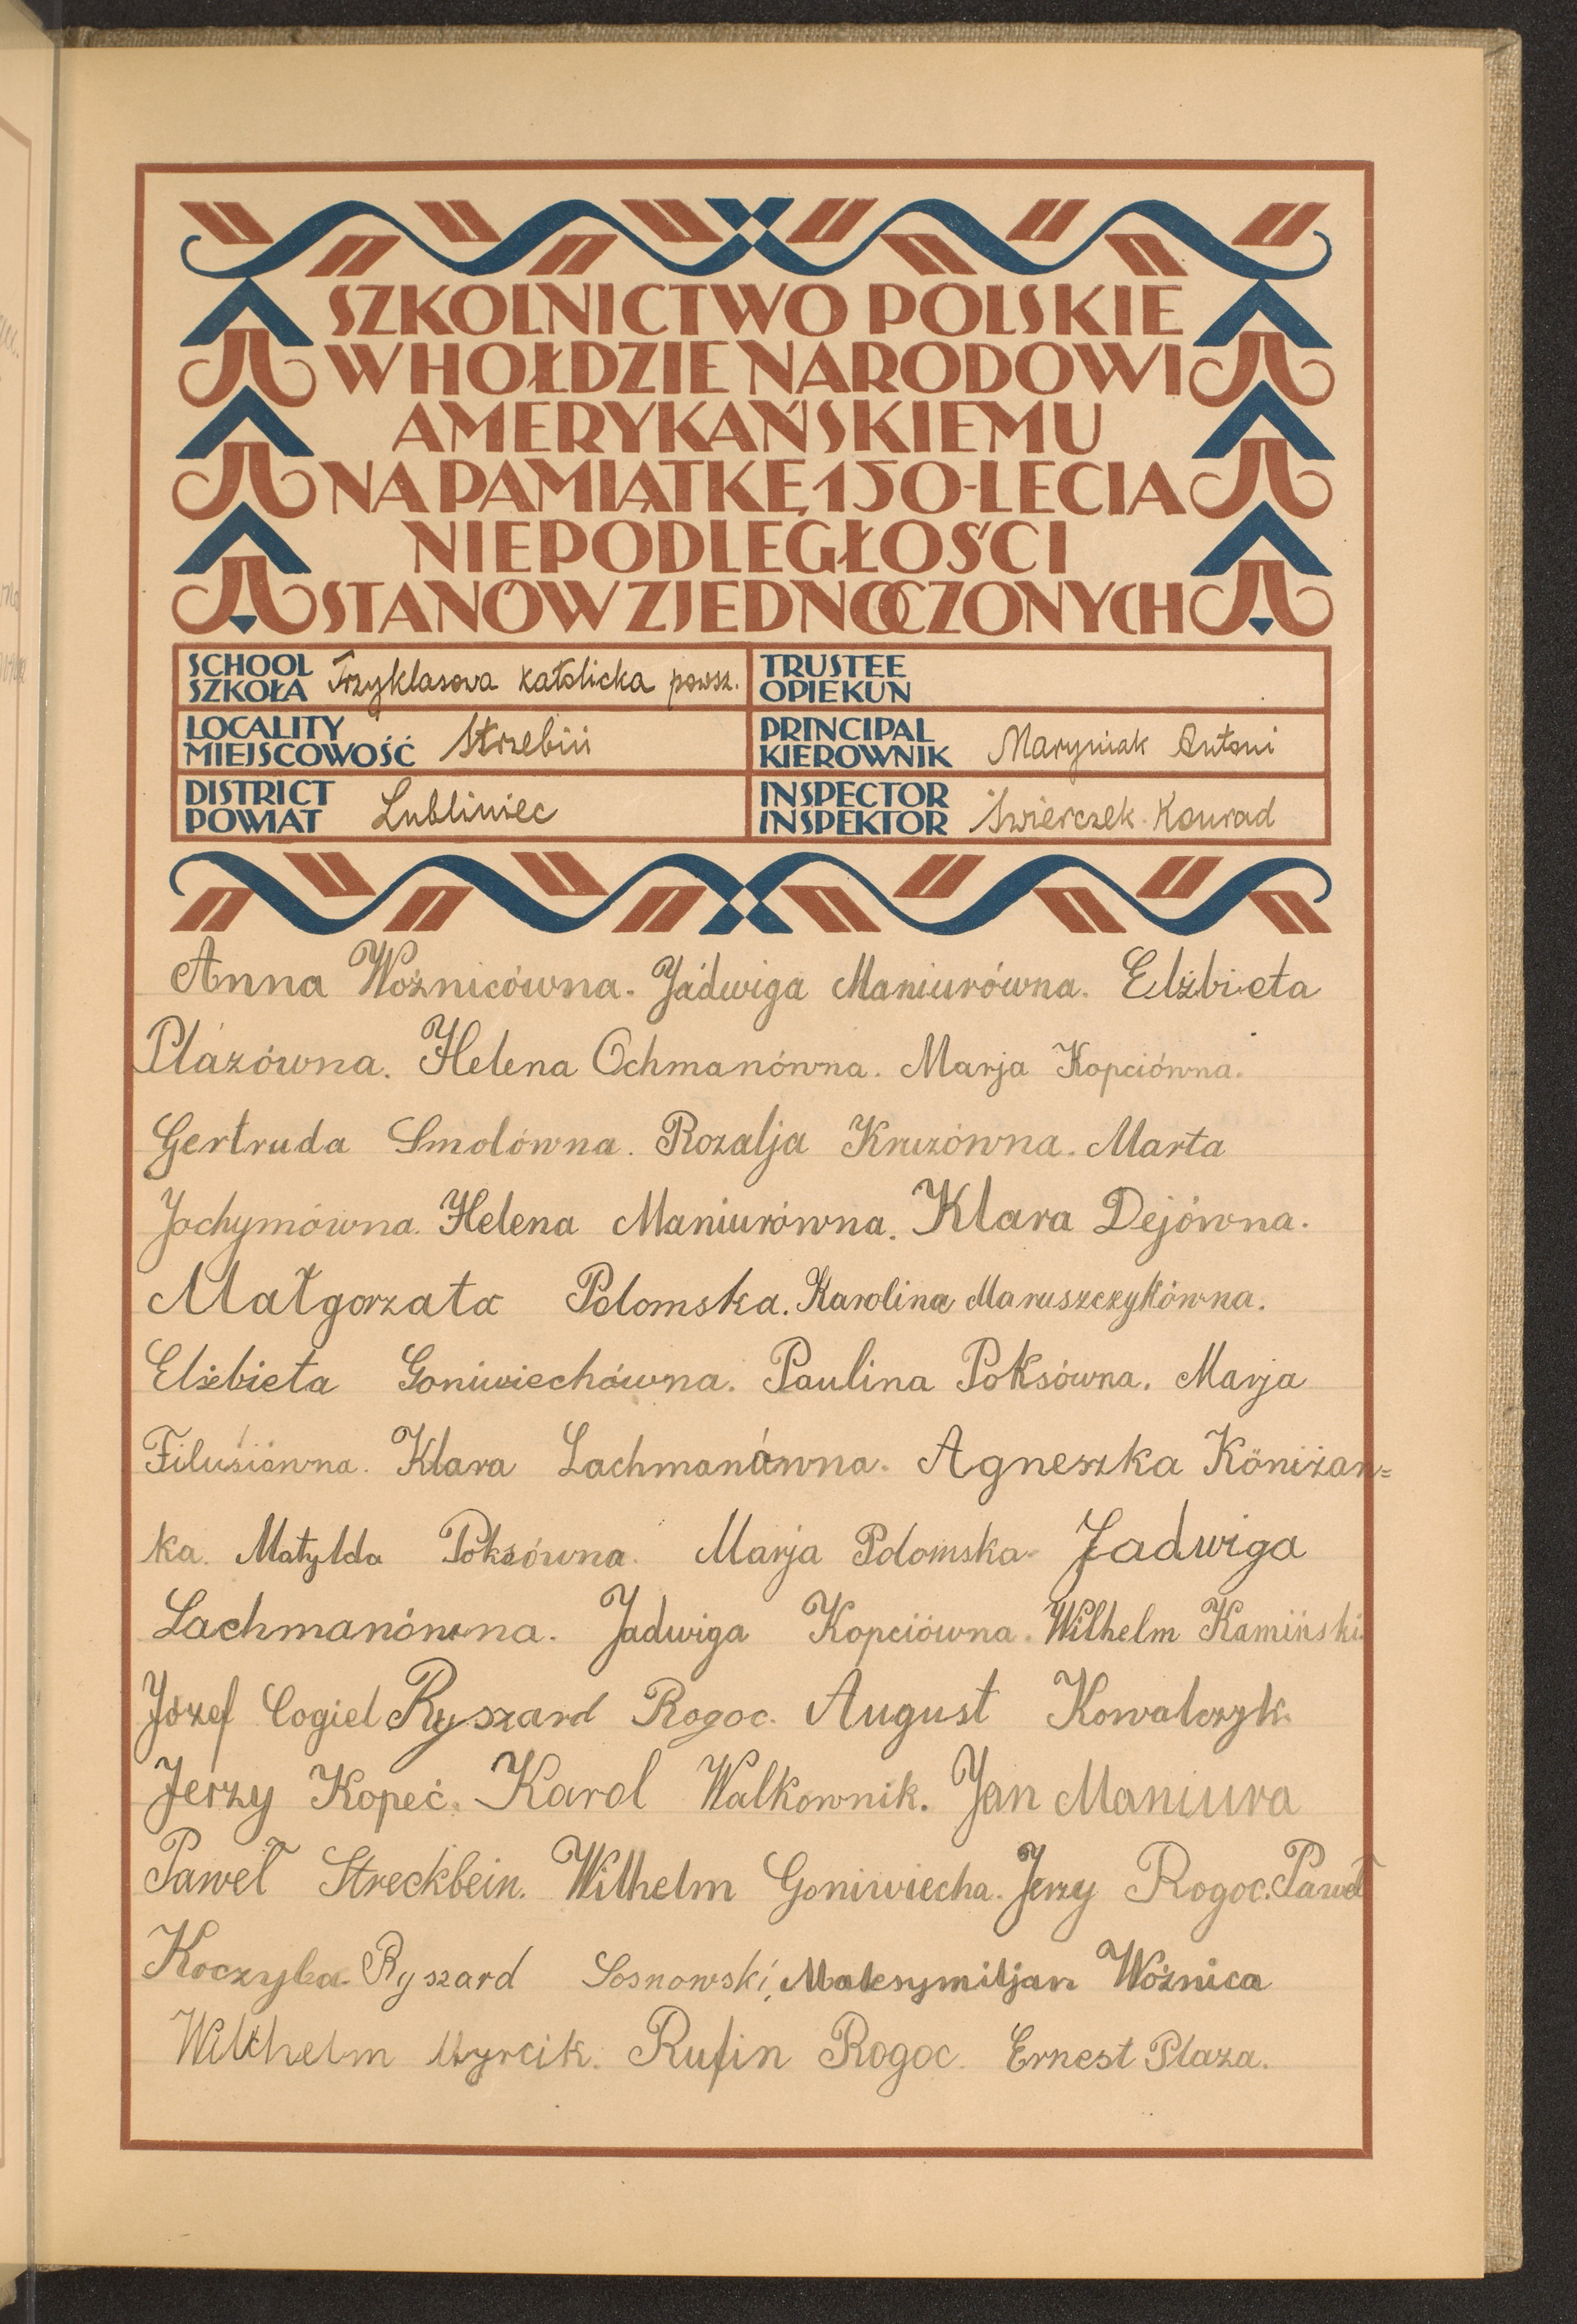 SZKOLNICTWO POLSKIE
W HOŁDZIE NARODOWI
AMERYKAŃSKIEMU
NA PAMIĄTKĘ 150-LECIA
NIEPODLEGŁOŚCI
STANÓW ZJEDNOCZONYCH
SCHOOL
SZKOŁA Trzyklasowa katolicka powsz.
TRUSTEE
OPIEKUN
LOCALITY
MIEJSCOWOŚĆ Strzebiń
PRINCIPAL
KIEROWNIK Maryniak Antoni
DISTRICT
POWIAT Lubliniec
INSPECTOR
INSPEKTOR Świerczek Konrad
Anna Woźnicówna. Jadwiga Maniurówna. Elżbieta
Plazówna. Helena Ochmanówna. Marja Kopciówna.
Gertruda Smolówna. Rozalja Kruzówna. Marta
Jochymówna. Helena Maniurówna. Klara Dejówna.
Małgorzata Polomska. Karolina Maruszczykówna.
Elżbieta Goniwiechówna. Paulina Poksówna. Marja
Filusiówna. Klara Lachmanówna. Agneszka Köniżan=
ka. Matylda Poksówna. Marja Polomska. Jadwiga
Lachmanówna. Jadwiga Kopciówna. Wilhelm Kamiński.
Józef Cogiel Ryszard Rogoc. August Kowalczyk.
Jerzy Kopeć. Karol Walkownik. Jan Maniura
Paweł Streckbein. Wilhelm Goniwiecha. Jerzy Rogoc. Paweł
Koczyba. Ryszard Sosnowski, Maksymiljan Woźnica
Wilhelm Myrcik. Rufin Rogoc. Ernest Plaza.